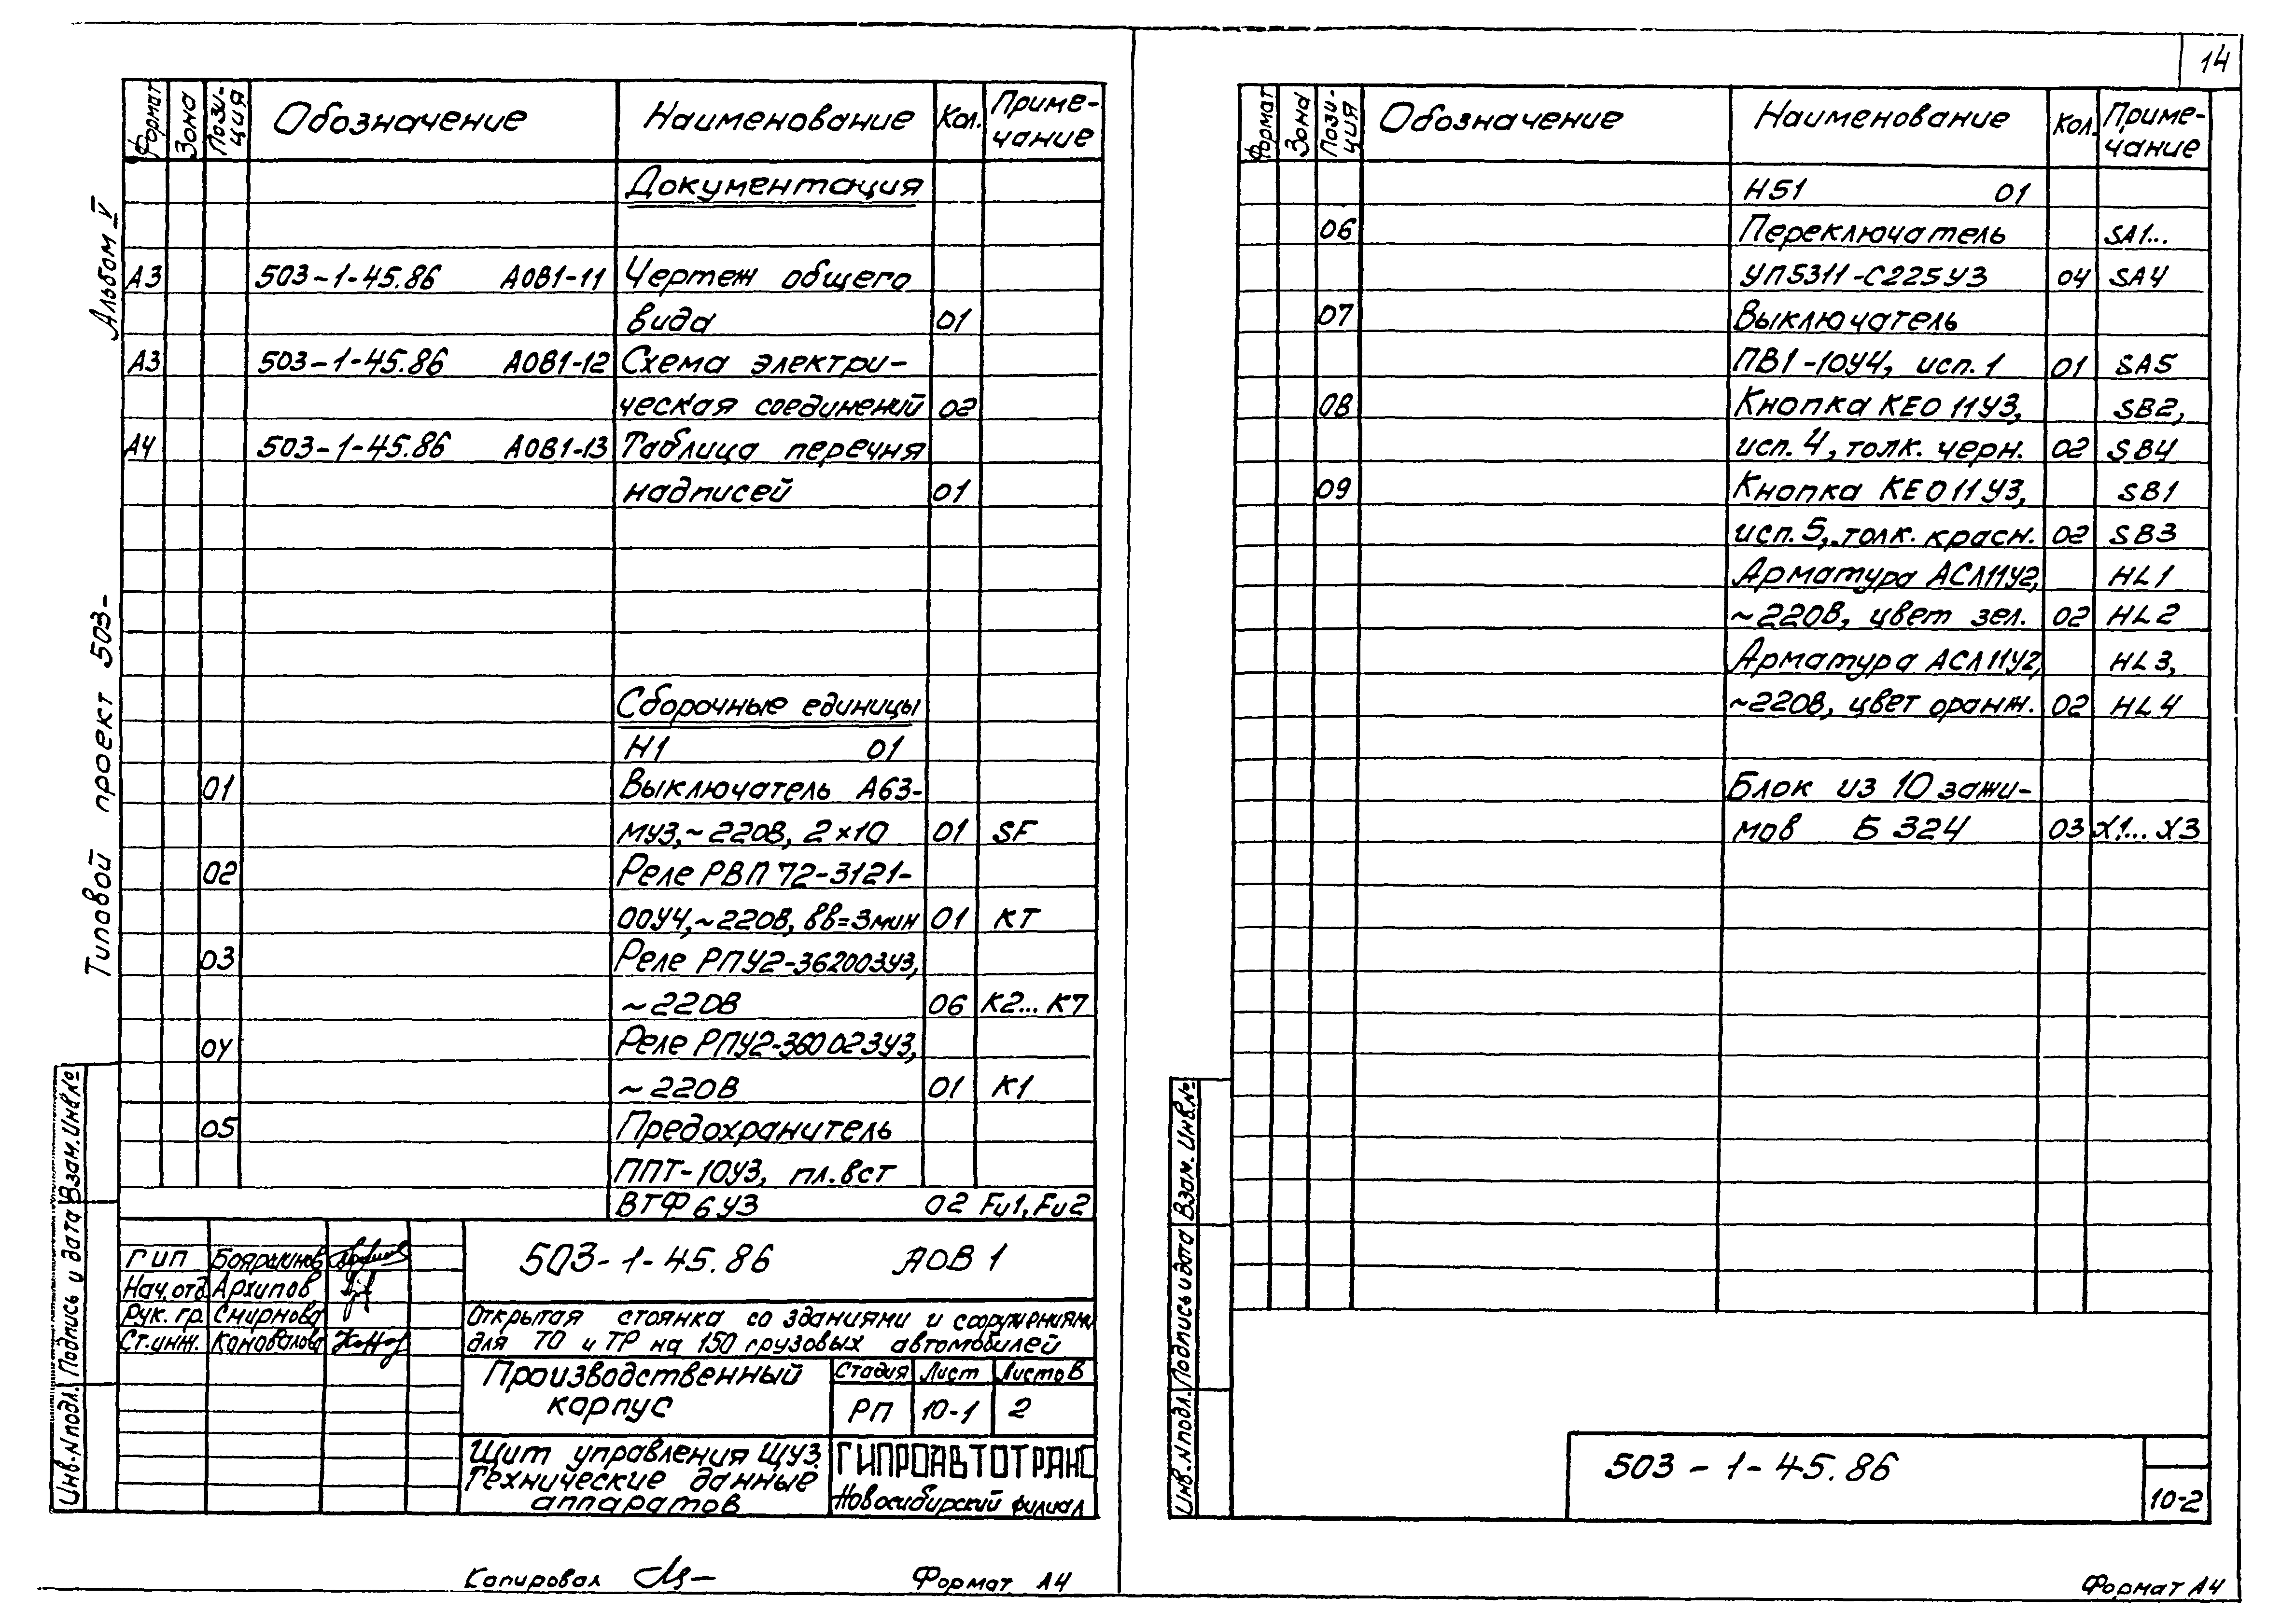 14
Альбом V
Типовой проект 503-
Формат Зона Пози-ция Обозначение Наименование Кол. Приме-чание
Документация
А3 503-1-45.86 АОВ1-11 Чертеж общего
вида 01
А3 503-1-45.86 АОВ1-12 Схема электри-
ческая соединений 02
А4 503-1-45.86 АОВ1-13 Таблица перечня
надписей 01
Сборочные единицы
Н1 01
01 Выключатель А63-
МУ3,~220В, 2×10 01 SF
02 Реле РВП 72-3121-
00У4,~220В, вв=3мин 01 КТ
03 Реле РПУ2-362003У3,
~220В 06 К2... К7
04 Реле РПУ2-360023У3,
~220В 01 К1
05 Предохранитель
ППТ-10У3, пл.вст
ВТФ6У3 02 Fu1, Fu2
503-1-45.86 АОВ 1
ГИП Бояршинов
Нач.отд Архипов
Рук. гр. Смирнова
Ст.инж. Коновалова
Открытая стоянка со зданиями и сооружениями
для ТО и ТР на 150 грузовых автомобилей
Производственный
корпус
Стадия Лист Листов
РП 10-1 2
Щит управления ЩУ3.
Технические данные
аппаратов
ГИПРОАВТОТРАНС
Новосибирский филиал
Инв.Nподл. Подпись и дата Взам.Инв.№
Копировал
Формат А4
Формат Зона Пози-ция Обозначение Наименование Кол. Приме-чание
Н51 01
06 Переключатель SA1...
УП5311-С225У3 04 SA4
07 Выключатель
ПВ1-10У4, исп. 1 01 SA5
08 Кнопка КЕ011У3, SB2,
исп. 4, толк. черн. 02 SB4
09 Кнопка КЕ011У3, SB1
исп. 5, толк. красн. 02 SB3
Арматура АСЛ11У2, HL1
~220В, цвет зел. 02 HL2
Арматура АСЛ11У2, HL3,
~220В, цвет оранж. 02 HL4
Блок из 10 зажи-
мов Б 324 03 Х1... Х3
Инв.Nподл. Подпись и дата Взам. Инв.№
503-1-45.86
10-2
Формат А4